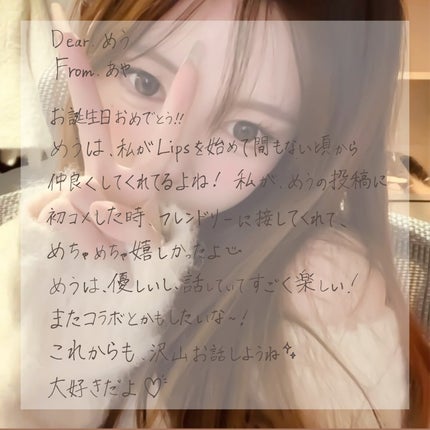 Dear. めう
From. あや
お誕生日おめでとう!!
めうは、私がLipsを始めて間もない頃から
仲良くしてくれてるよね! 私が、めうの投稿に
初コメした時、フレンドリーに接してくれて、
めちゃめちゃ嬉しかったよ
めうは、優しいし、話していてすごく楽しい!
またコラボとかもしたいな〜!
これからも、沢山お話しようね
大好きだよ♡